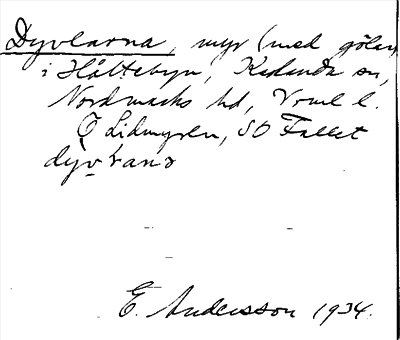 Dyvlarna, myr (med gölar)
i Håltebyn, Karlanda sn,
Nordmarks hd, Vrml l.
Ö Lidmyren, SO Fallet
dyv̯ḷana
E. Andersson 1934.